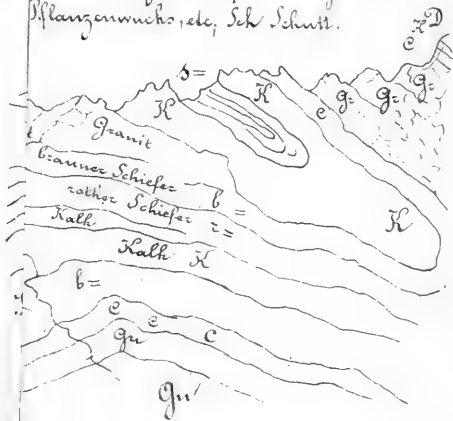 Pflanzenwuchs, etc; Sch Schutt.
D
K
C
s=
K
K
e
G=
G=
G=
t
Granit
brauner Schiefer
rother Schiefer
b=
r=
K
Kalk
Kalk K
b=
e
e
c
Gn
Gn'